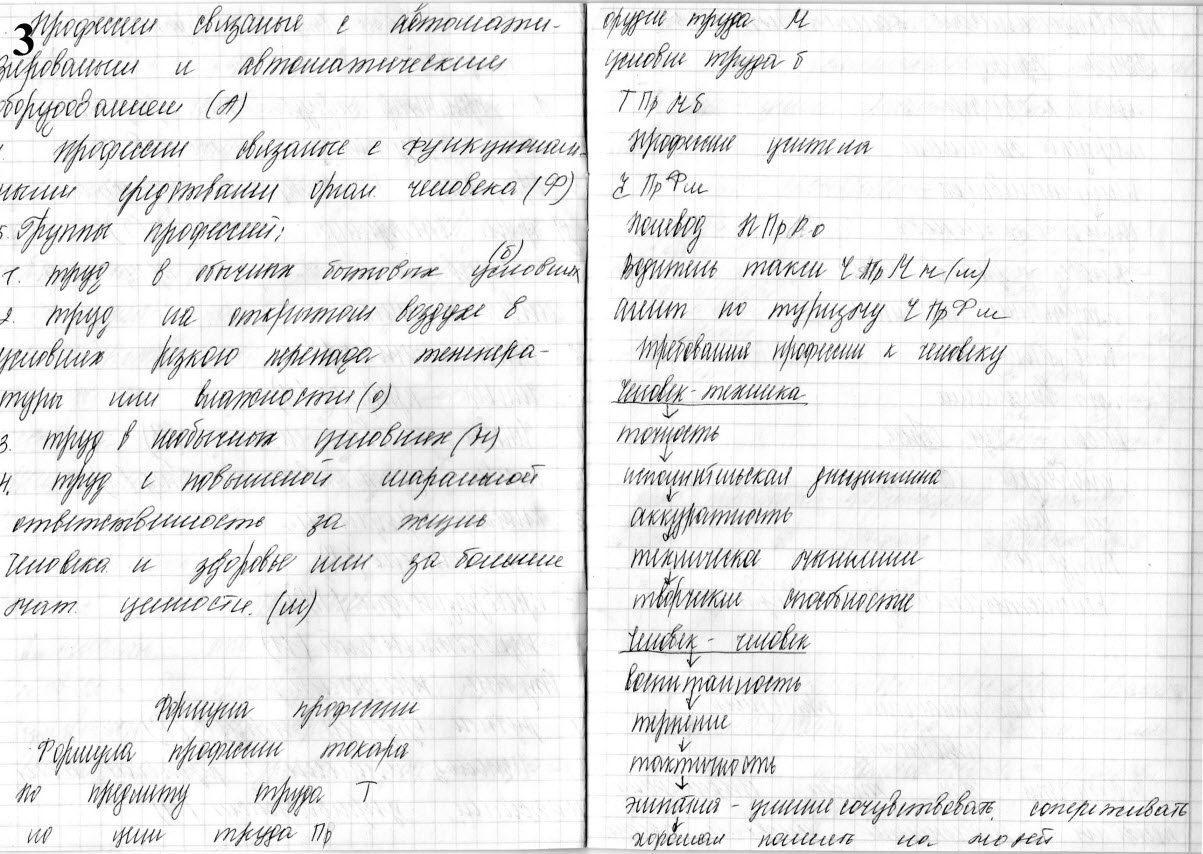 3
Професии связаные с автомати-
зированым и автоматическим
оборудованием (А)
Професии связаные с функционал-
ными средствами орган. человека (Ф)
5. Группы професий:
1. труд в обычных бытовых условиях (б)
2. труд на открытом воздухе в
условиях резкого перепада темпера-
туры или влажности (о)
3. труд в необычных условиях (Н)
4. труд с повышеной маральной
ответственность за жизнь
человека и здоровье или за большие
мат. ценности. (м)
Формула професии
Формула професии токаря
по предмиту труда Т
по цели труда Пр
орудие труда М
условие труда б
Т Пр М б.
професие учителя
Ч Пр Ф м
полевод П Пр Р о
водитель такси Ч Пр М н (м)
агент по туризму Ч Пр Ф м
требования професии к человеку
человек - техника
точность
исполнительская дисциплина
аккуратность
техническое мышление
творчиские способностие
человек - человек
воспитанность
терпение
тактичность
эмпатия - умение сочувствовать, сопереживать
хорошая память на людей